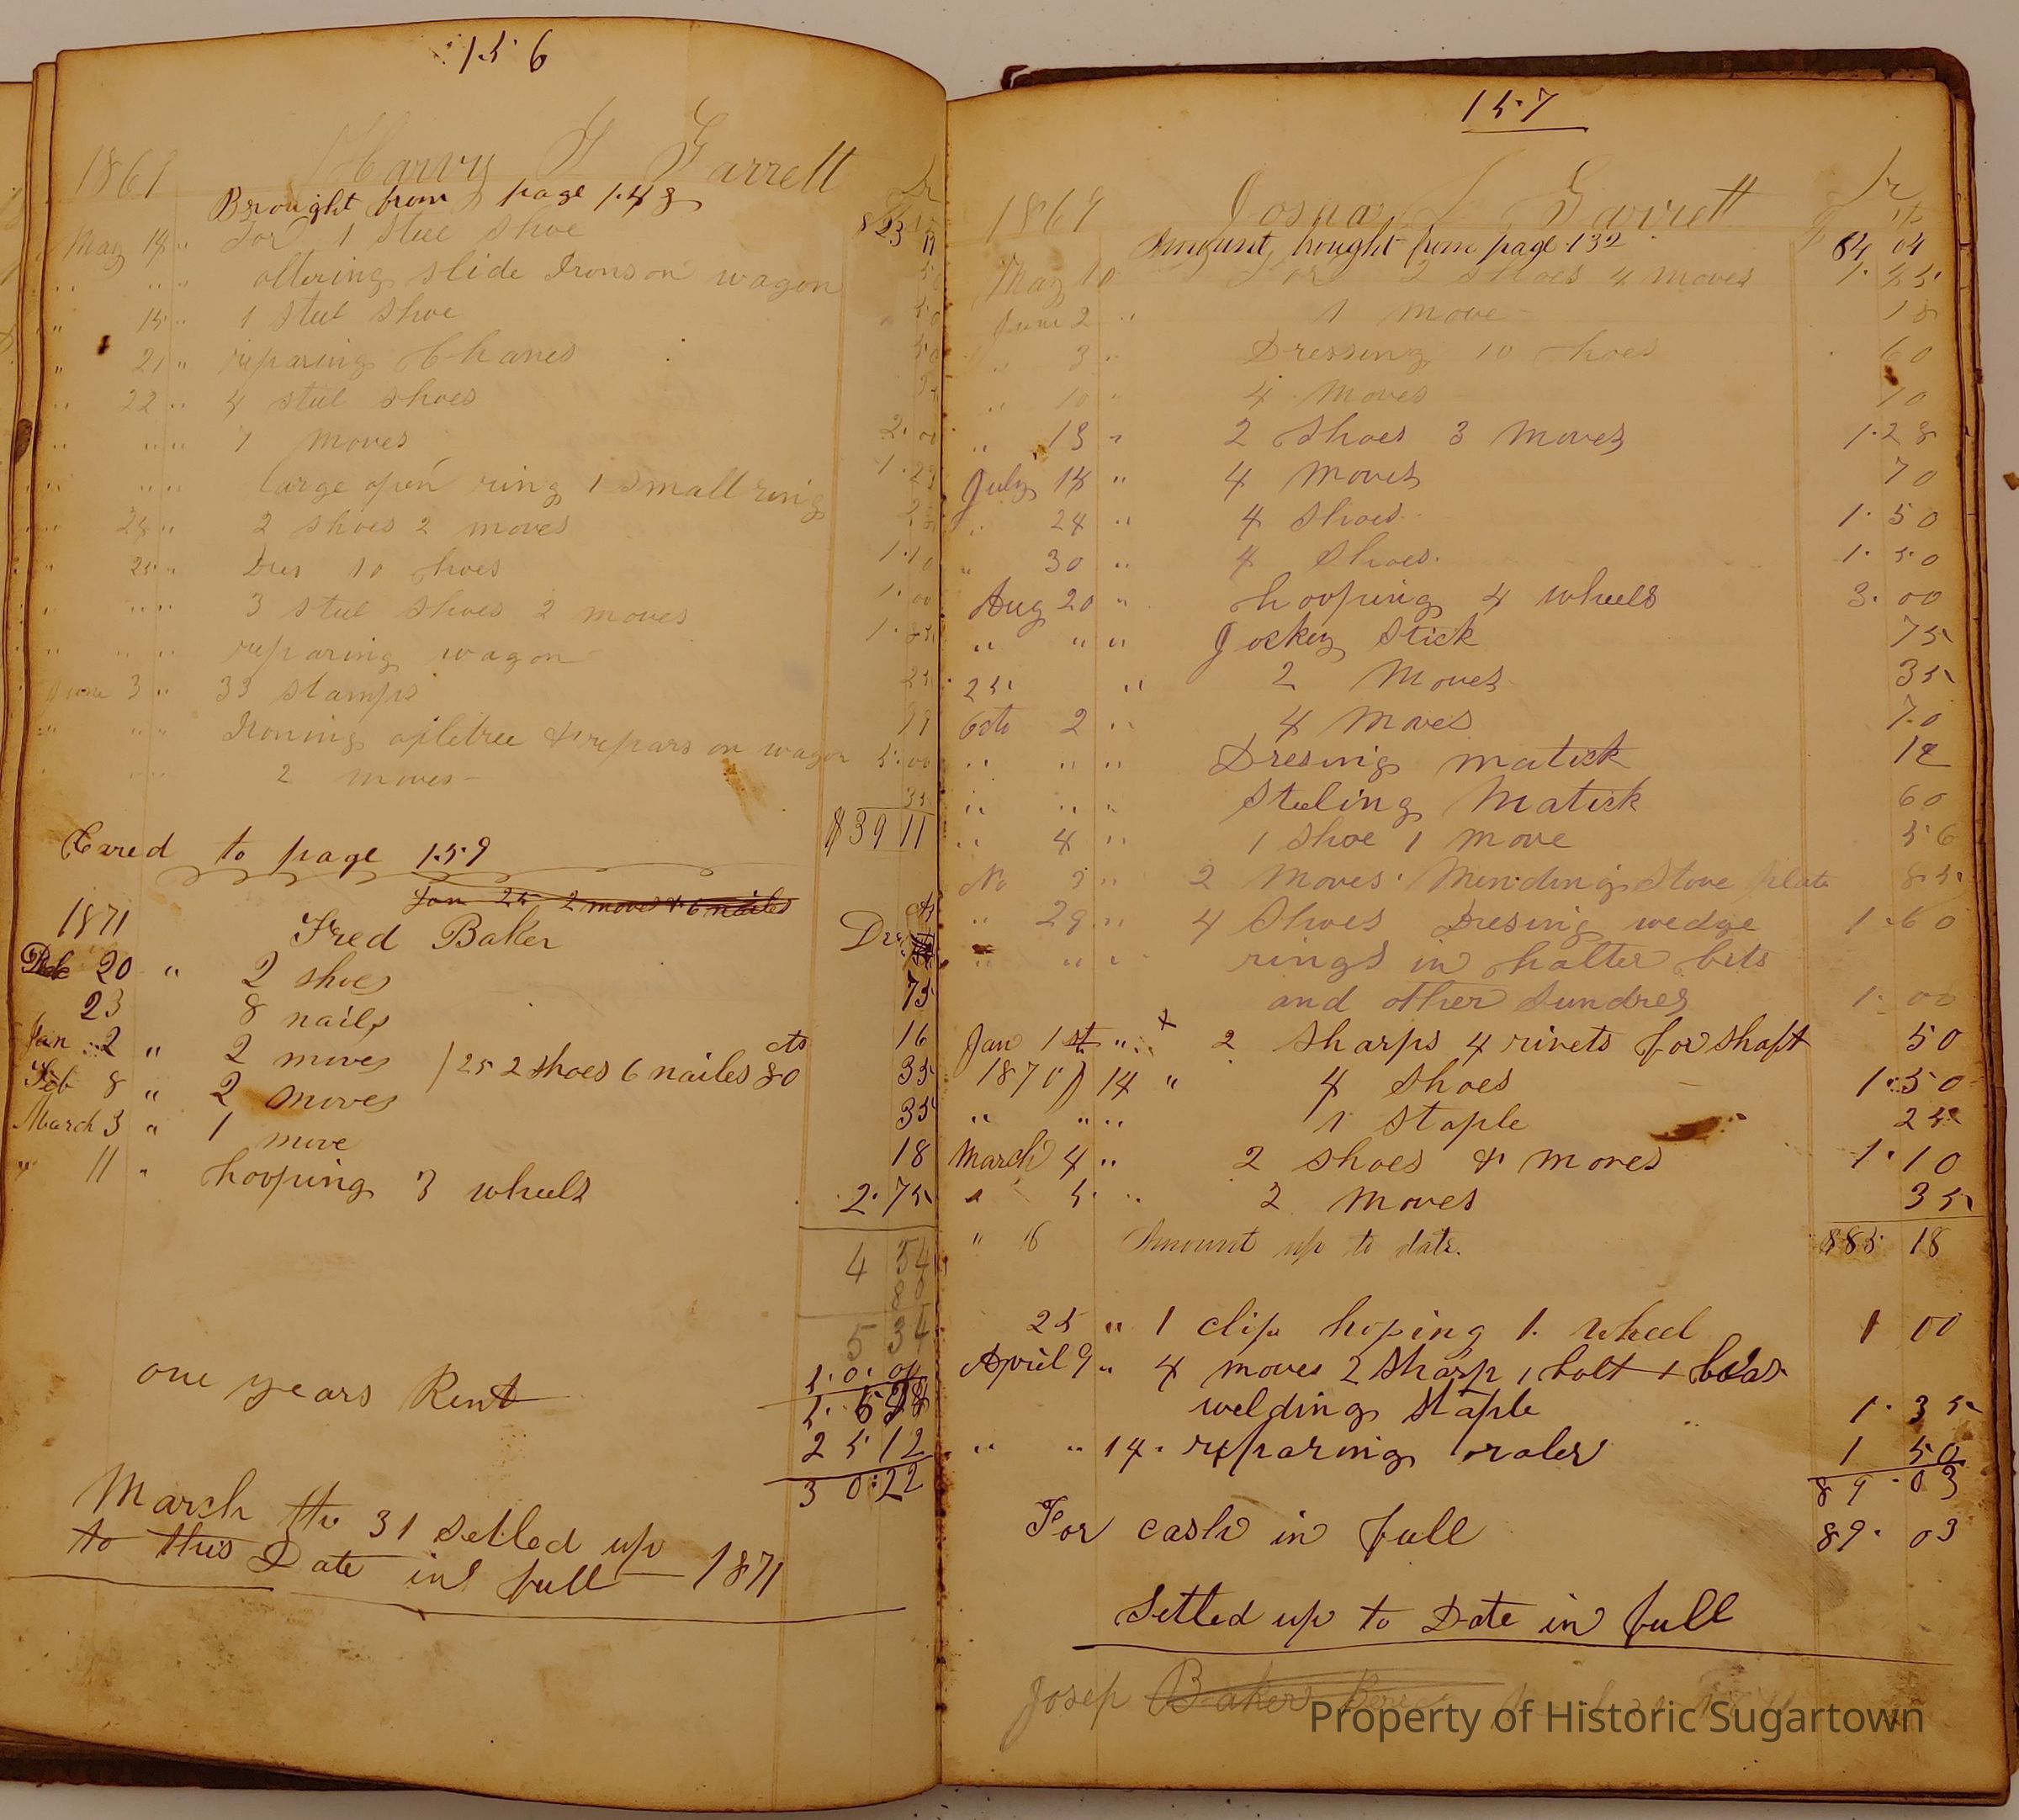 156
1869 Harvy G Garrett Dr
Brought from page 148
May 14 " For 1 Steel Shoe
" " " altering slide Irons on wagon 50
" 15 " 1 Steel Shoe 50
" 21 " reparing 6 hames 50
" 22 " 4 steel shoes
" " " 7 moves 2.00
" " " large open ring 1 small ring
" 2 shoes 2 moves
" 25 " Dres 10 shoes 1.10
" " " 3 steel shoes 2 moves 1.00
" " " reparing wagon
June 3 " 33 stamps 25
" " " Ironing apletree & repars on wagon 99
" " " 2 moves 5.00
35
$39 11
Cared to page 159
Jan 25 2 moves & 6 nailes
1871 Fred Baker Dr. cts
20 " 2 shoes 75
23 8 nails 16
Jan 2 " 2 moves / 25 2 shoes 6 nailes 80 cts 35
Feb 8 " 2 moves 35
March 3 " 1 move 18
" 11 " hooping 3 wheels 2.75
4 54
80
5 34
one years Rent
25 12
30.22
March the 31 Setled up
to this Date in full — 1871
157
1869 Joshua L Garrett Dr
Amount brought from page 132 64 04
May 10 For 2 shoes 4 moves 1.45
June 2 " 1 move 18
" 3 " Dressing 10 shoes 60
" 10 " 4 moves 70
" 13 " 2 Shoes 3 moves 1.28
July 14 " 4 moves 70
" 24 " 4 Shoes 1.50
" 30 " 4 Shoes. 1.50
Aug 20 " hooping 4 wheels 3.00
" " " Jockey Stick 75
25 " 2 Moves 35
Octo 2 " 4 moves 70
" " " Dresing matick 12
" " " Steeling Matick 60
" 4 " 1 Shoe 1 move 56
No 5 " 2 Moves Mending Stove plate 85
" 29 " 4 Shoes Dresing wedge 1.60
" " " rings in halter bits
and other Sundres 1.00
Jan 1st " 2 Sharps 4 rivets for Shaft 50
1870 14 " 4 Shoes 1.50
" " " 1 Staple 25
March 4 " 2 Shoes & moves 1.10
" 5 " 2 Moves 35
" 6 Amount up to date. $85 18
25 " 1 clip hoping 1 wheel 1 00
April 9 " 4 moves 2 Sharp 1 bolt
welding Staple 1.35
" " 14 reparing 1 50
89.03
For cash in full 89.03
Setled up to Date in full
Josep Bakers
Property of Historic Sugartown